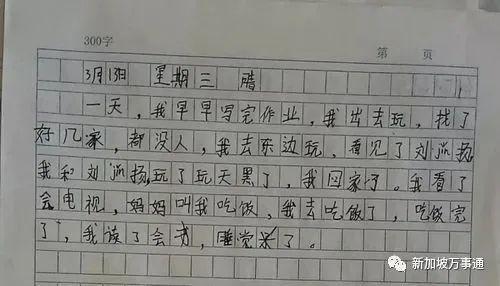 300字
第 页
3月13日 星期三 晴
一天，我早早写完作业，我出去玩，找了
好几家，都没人，我去东边玩，看见了刘派扬，
我和刘派扬玩了玩天黑了，我回家了。我看了
会电视，妈妈叫我吃饭，我去吃饭了，吃饭完
了，我读了会书，睡觉来了。
新加坡万事通